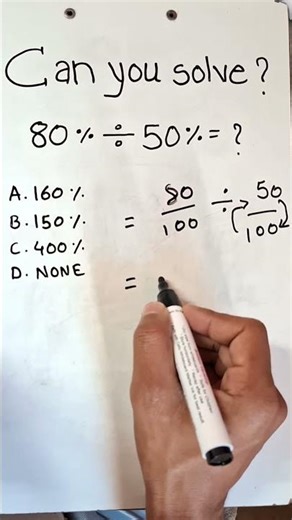 Can you solve?
80% ÷ 50% = ?
A. 160%
B. 150%
C. 400%
D. NONE
= 80/100 ÷ 50/100
=